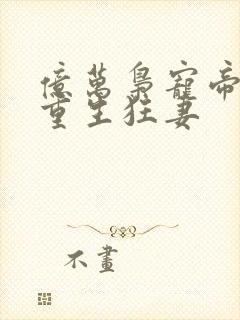 億萬梟寵帝
重生狂妻
不畫